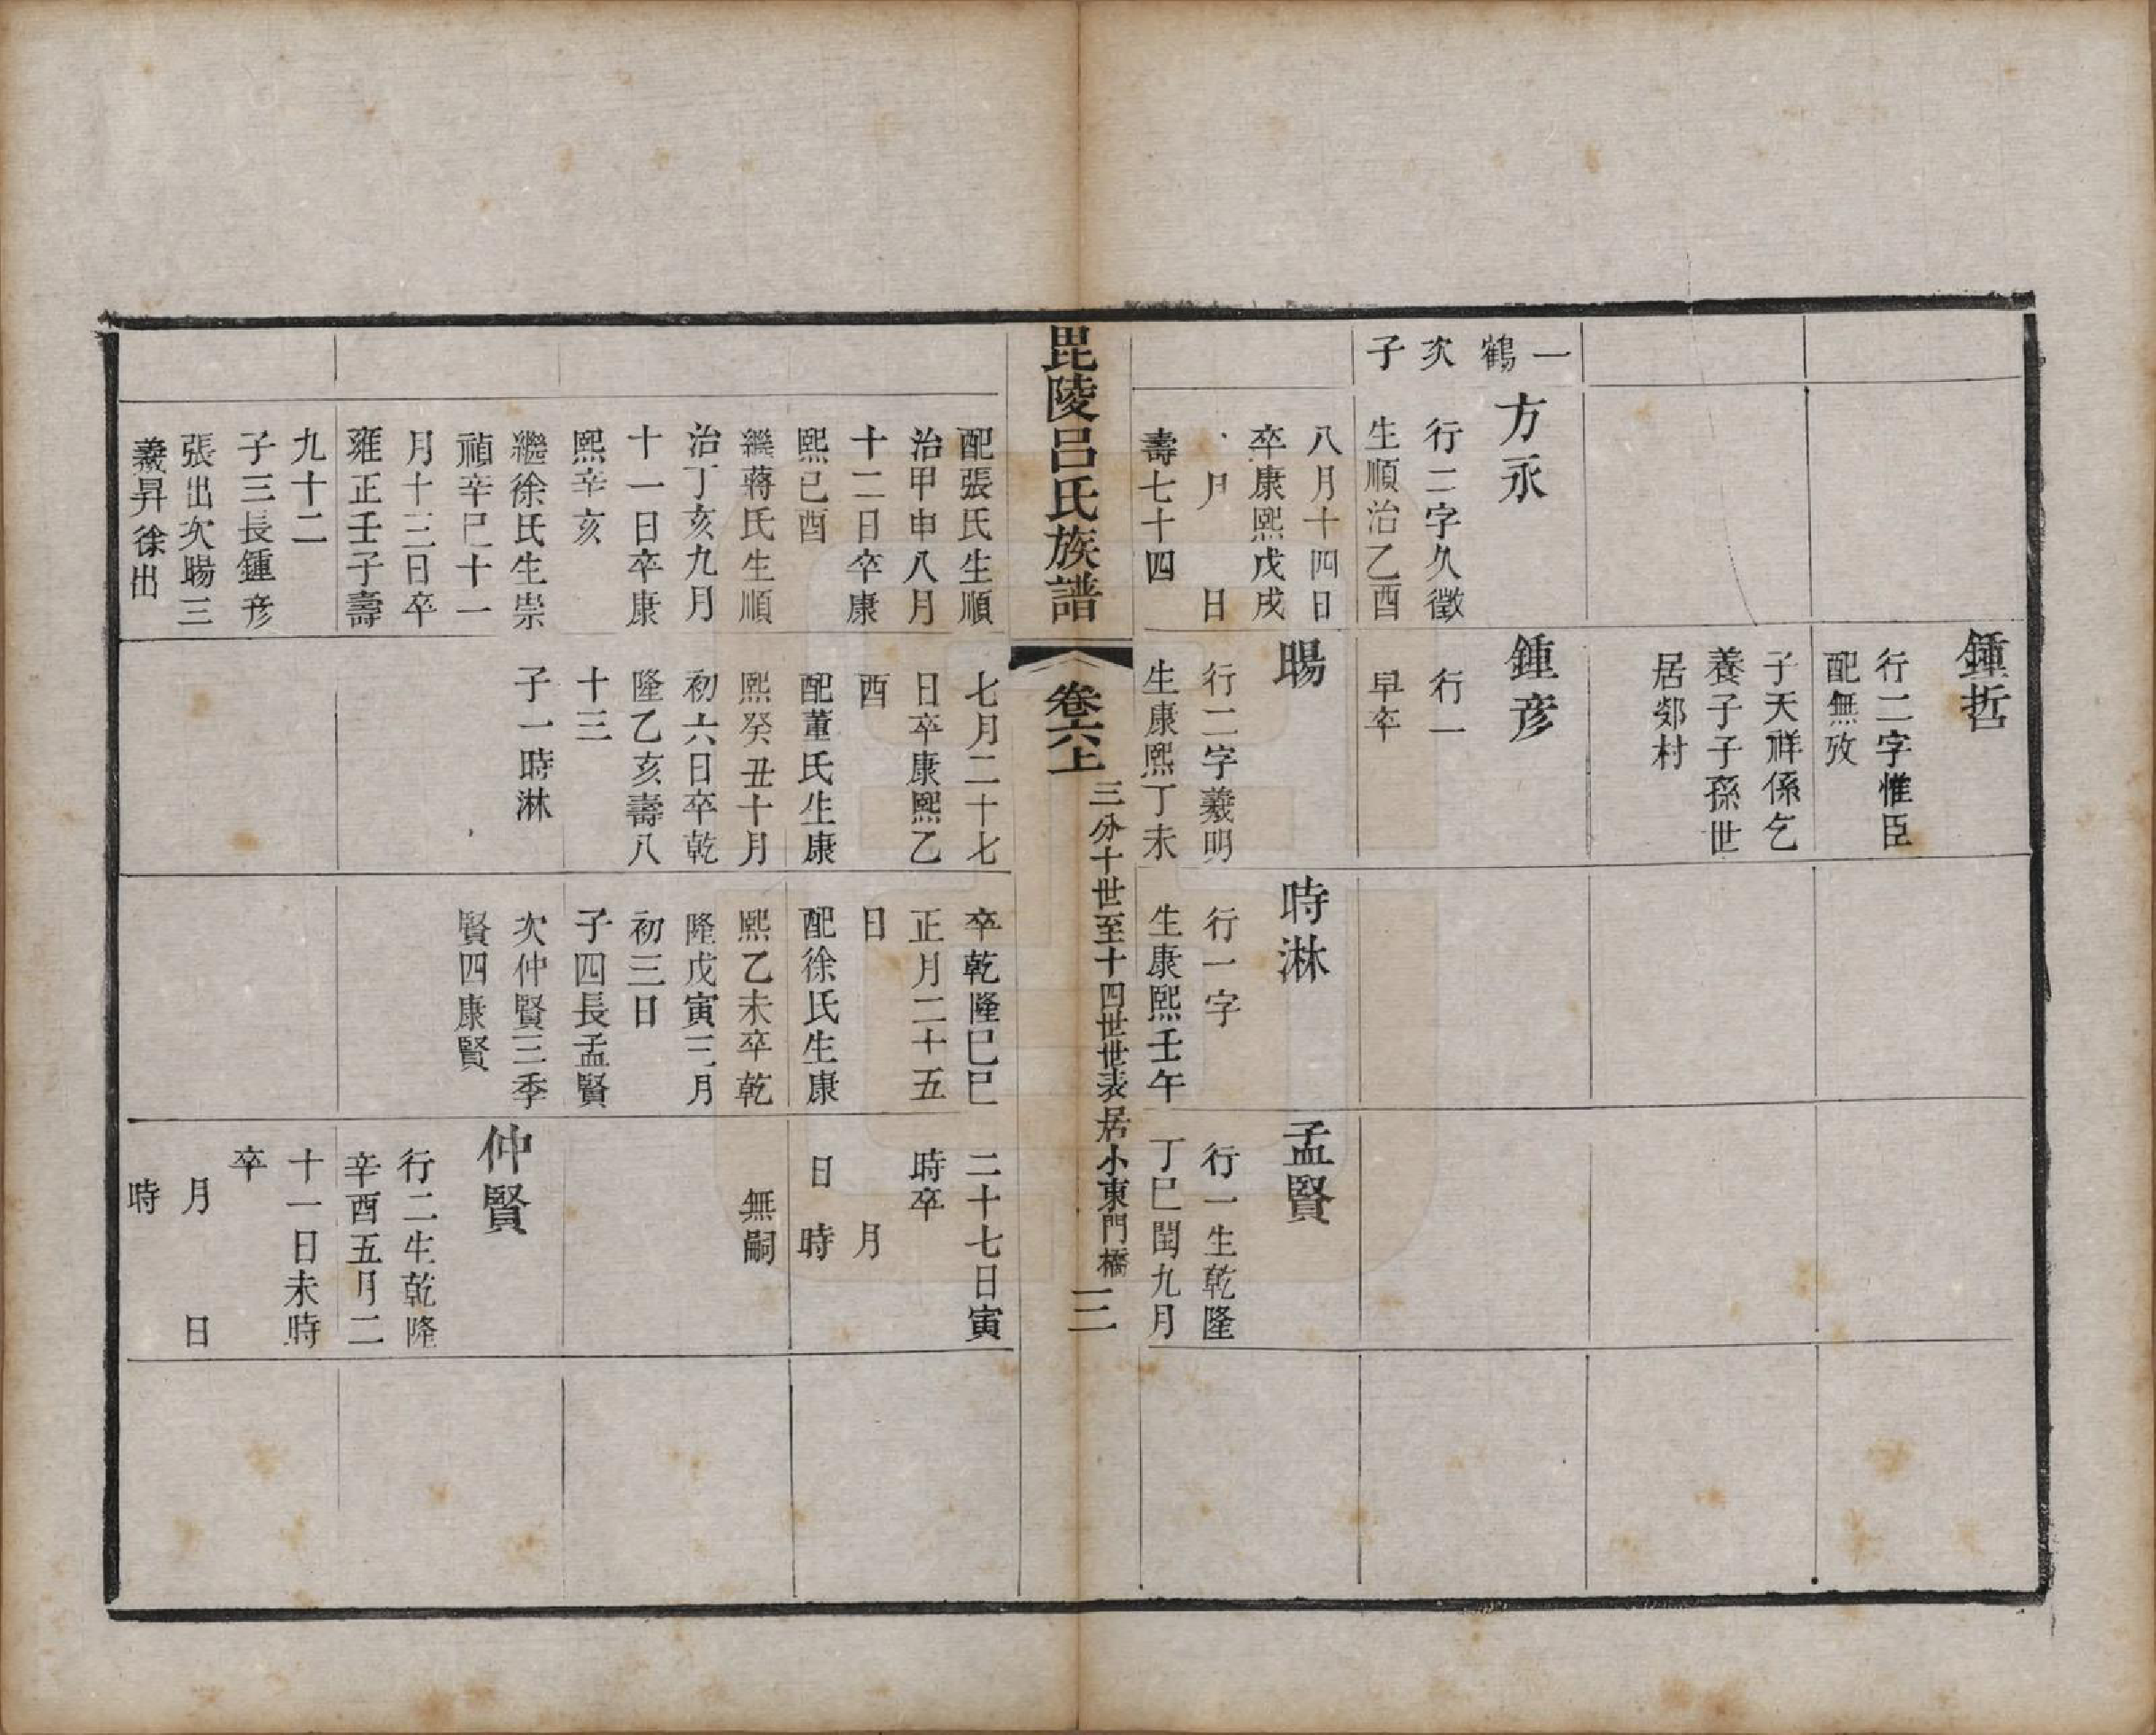 鍾哲
行二字惟臣
配無攷
子天祥係乞
養子子孫世
居鄒村
一鶴
次
子
方永
行二字久徵
生順治乙酉
八月十四日
卒康熙戊戌
月 日
壽七十四
配張氏生順
治甲申八月
十二日卒康
熙己酉
繼蔣氏生順
治丁亥九月
十一日卒康
熙辛亥
繼徐氏生崇
禎辛巳十一
月十三日卒
雍正壬子壽
九十二
子三長鍾彥
張出次暘三
羲昇徐出
鍾彥
行一
早卒
暘
行二字羲明
生康熙丁未
七月二十七
日卒康熙乙
酉
配董氏生康
熙癸丑十月
初六日卒乾
隆乙亥壽八
十三
子一時淋
時淋
行一字
生康熙壬午
卒乾隆己巳
正月二十五
日
配徐氏生康
熙乙未卒乾
隆戊寅三月
初三日
子四長孟賢
次仲賢三季
賢四康賢
孟賢
行一生乾隆
丁巳閏九月
二十七日寅
時卒
月
日 時
無嗣
仲賢
行二生乾隆
辛酉五月二
十一日未時
卒
月 日
時
毘陵呂氏族譜
卷六上
三分十世至十四世世表居小東門橋
三